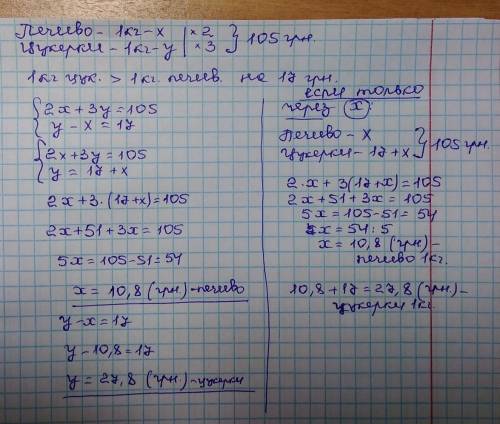 Печево - 1кг - x | × 2 } 105 грн.
Цукерки - 1кг - y | × 3
1кг цук. > 1кг. печев. на 17 грн.
{ 2x + 3y = 105
y - x = 17
{ 2x + 3y = 105
y = 17 + x
2x + 3 · (17 + x) = 105
2x + 51 + 3x = 105
5x = 105 - 51 = 54
x = 10,8 (грн) - печево
y - x = 17
y - 10,8 = 17
y = 27,8 (грн.) - цукерки
если только
через x:
Печево - x } 105 грн.
Цукерки - 17 + x
2 · x + 3 (17 + x) = 105
2x + 51 + 3x = 105
5x = 105 - 51 = 54
x = 54 : 5
x = 10,8 (грн) -
печево 1кг.
10,8 + 17 = 27,8 (грн) -
цукерки 1кг.